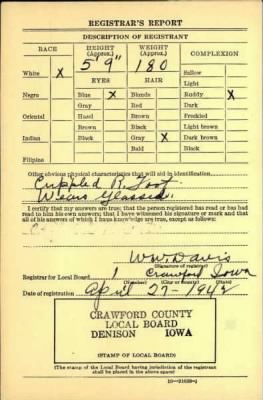 REGISTRAR'S REPORT
DESCRIPTION OF REGISTRANT
RACE HEIGHT (Approx.) WEIGHT (Approx.) COMPLEXION
5' 9" 180
White X Sallow
EYES HAIR Light
Negro Blue X Blonde Ruddy X
Gray Red Dark
Oriental Hazel Brown Freckled
Brown Black Light brown
Indian Black Gray X Dark brown
Bald Black
Filipino
Other obvious physical characteristics that will aid in identification
Crippled R. Foot
Wears Glasses
I certify that my answers are true; that the person registered has read or has had
read to him his own answers; that I have witnessed his signature or mark and that
all of his answers of which I have knowledge are true, except as follows:
W W Davis
(Signature of registrar)
Registrar for Local Board 1 Crawford Iowa
(Number) (City or county) (State)
Date of registration April 27-1942
CRAWFORD COUNTY
LOCAL BOARD
DENISON IOWA
(STAMP OF LOCAL BOARD)
(The stamp of the Local Board having jurisdiction of the registrant
shall be placed in the above space)